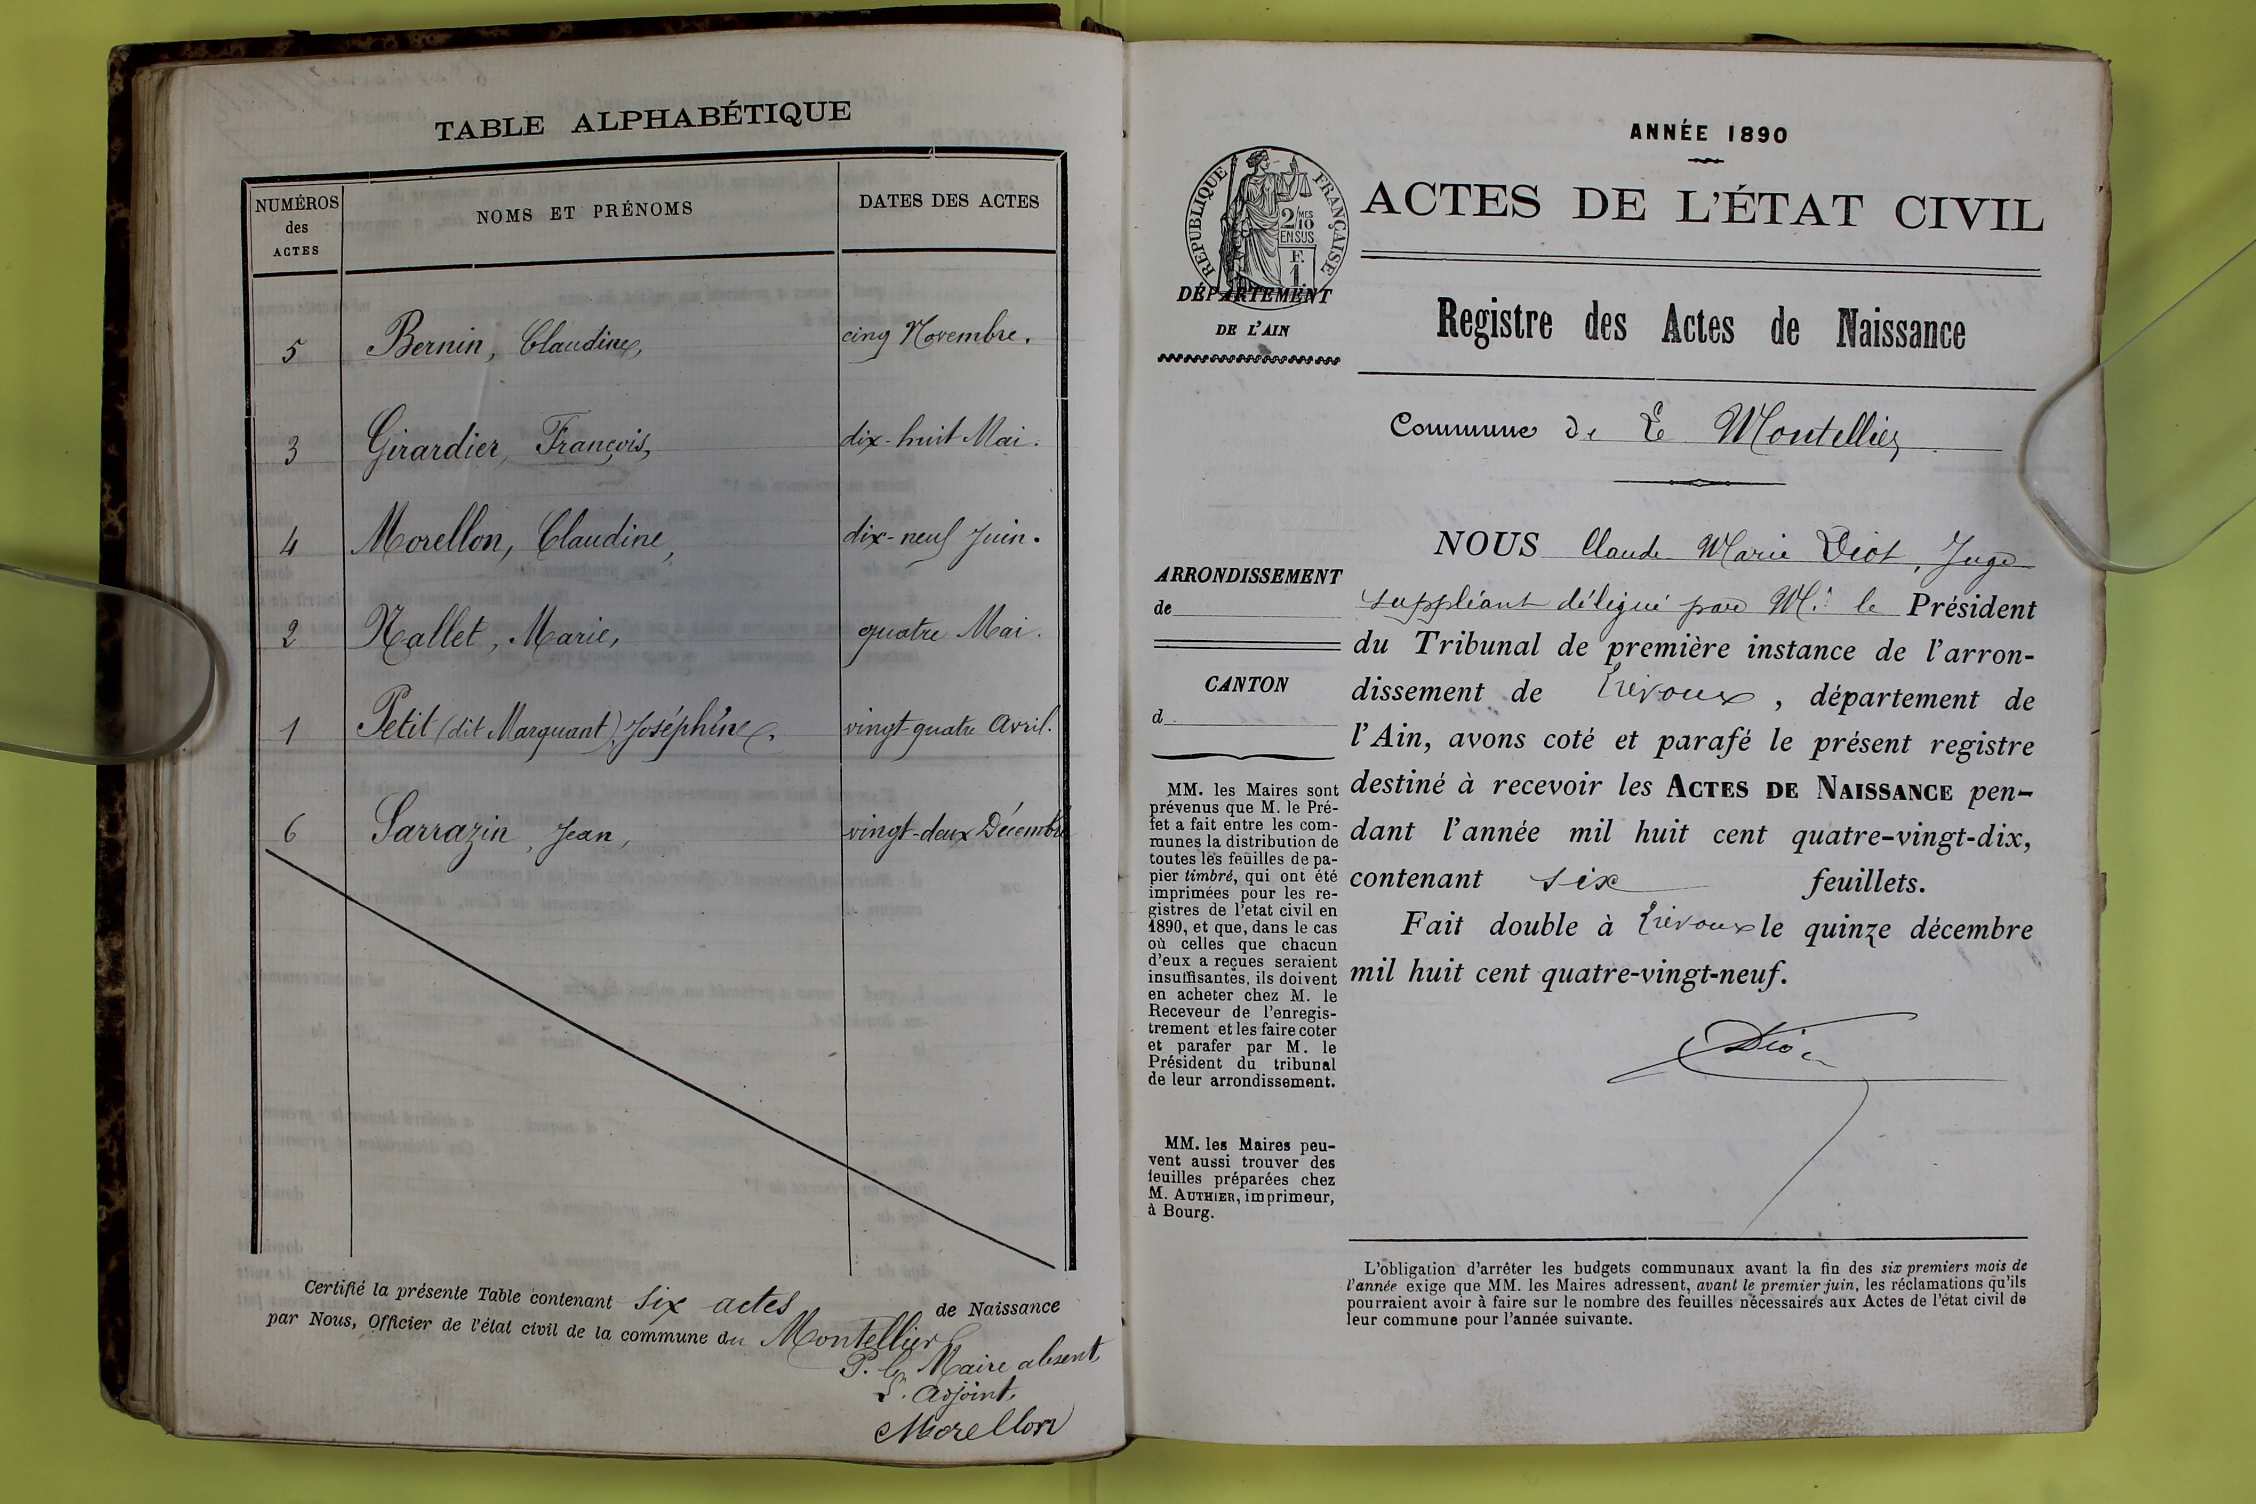 TABLE ALPHABÉTIQUE
NUMÉROS des ACTES
NOMS ET PRÉNOMS
DATES DES ACTES
5 Bernin, Claudine, cinq Novembre.
3 Girardier, François, dix-huit Mai.
4 Morellon, Claudine, dix-neuf Juin.
2 Nallet, Marie, quatre Mai.
1 Petit (dit Marquant) Joséphine, vingt-quatre Avril.
6 Sarrazin, Jean, vingt-deux Décembre
Certifié la présente Table contenant six actes de Naissance
par Nous, Officier de l'état civil de la commune du Montellier
P. le Maire absent
L'adjoint.
Morellon
ANNÉE 1890
RÉPUBLIQUE FRANÇAISE
2/10 MES
EN SUS
F.
1.
ACTES DE L'ÉTAT CIVIL
DÉPARTEMENT
DE L'AIN
Registre des Actes de Naissance
Commune de Le Montellier
ARRONDISSEMENT
de
CANTON
d
MM. les Maires sont
prévenus que M. le Pré-
fet a fait entre les com-
munes la distribution de
toutes les feuilles de pa-
pier timbré, qui ont été
imprimées pour les re-
gistres de l'etat civil en
1890, et que, dans le cas
où celles que chacun
d'eux a reçues seraient
insuffisantes, ils doivent
en acheter chez M. le
Receveur de l'enregis-
trement et les faire coter
et parafer par M. le
Président du tribunal
de leur arrondissement.
MM. les Maires peu-
vent aussi trouver des
feuilles préparées chez
M. AUTHIER, imprimeur,
à Bourg.
NOUS Claude Marie Diot, Juge
suppléant délégué par Mr. le Président
du Tribunal de première instance de l'arron-
dissement de Trévoux, département de
l'Ain, avons coté et parafé le présent registre
destiné à recevoir les ACTES DE NAISSANCE pen-
dant l'année mil huit cent quatre-vingt-dix,
contenant six feuillets.
Fait double à Trévoux le quinze décembre
mil huit cent quatre-vingt-neuf.
Diot
L'obligation d'arrêter les budgets communaux avant la fin des six premiers mois de
l'année exige que MM. les Maires adressent, avant le premier juin, les réclamations qu'ils
pourraient avoir à faire sur le nombre des feuilles nécessaires aux Actes de l'état civil de
leur commune pour l'année suivante.